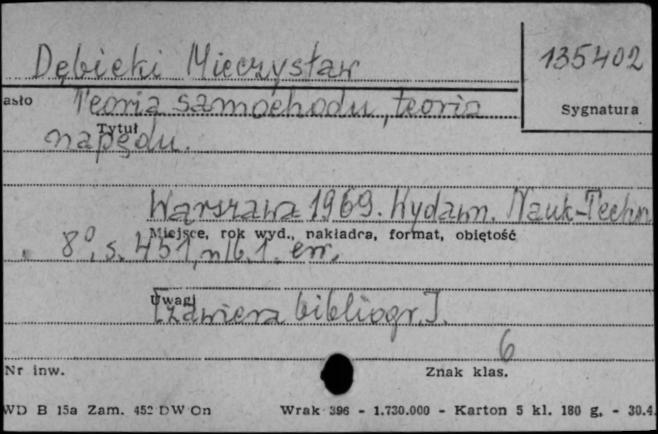 Dębicki Mieczysław
135402
asło
Teoria samochodu, teoria
Sygnatura
Tytuł
napędu.
Warszawa 1969. Wydawn. Nauk-Techn.
Miejsce, rok wyd., nakładca, format, objętość
8⁰, s. 451, nlb. 1. err.
Uwagi
[zawiera bibliogr.].
6
Nr inw.
Znak klas.
WD B 15a Zam. 452 DW On Wrak 396 - 1.730.000 - Karton 5 kl. 180 g. - 30.4.